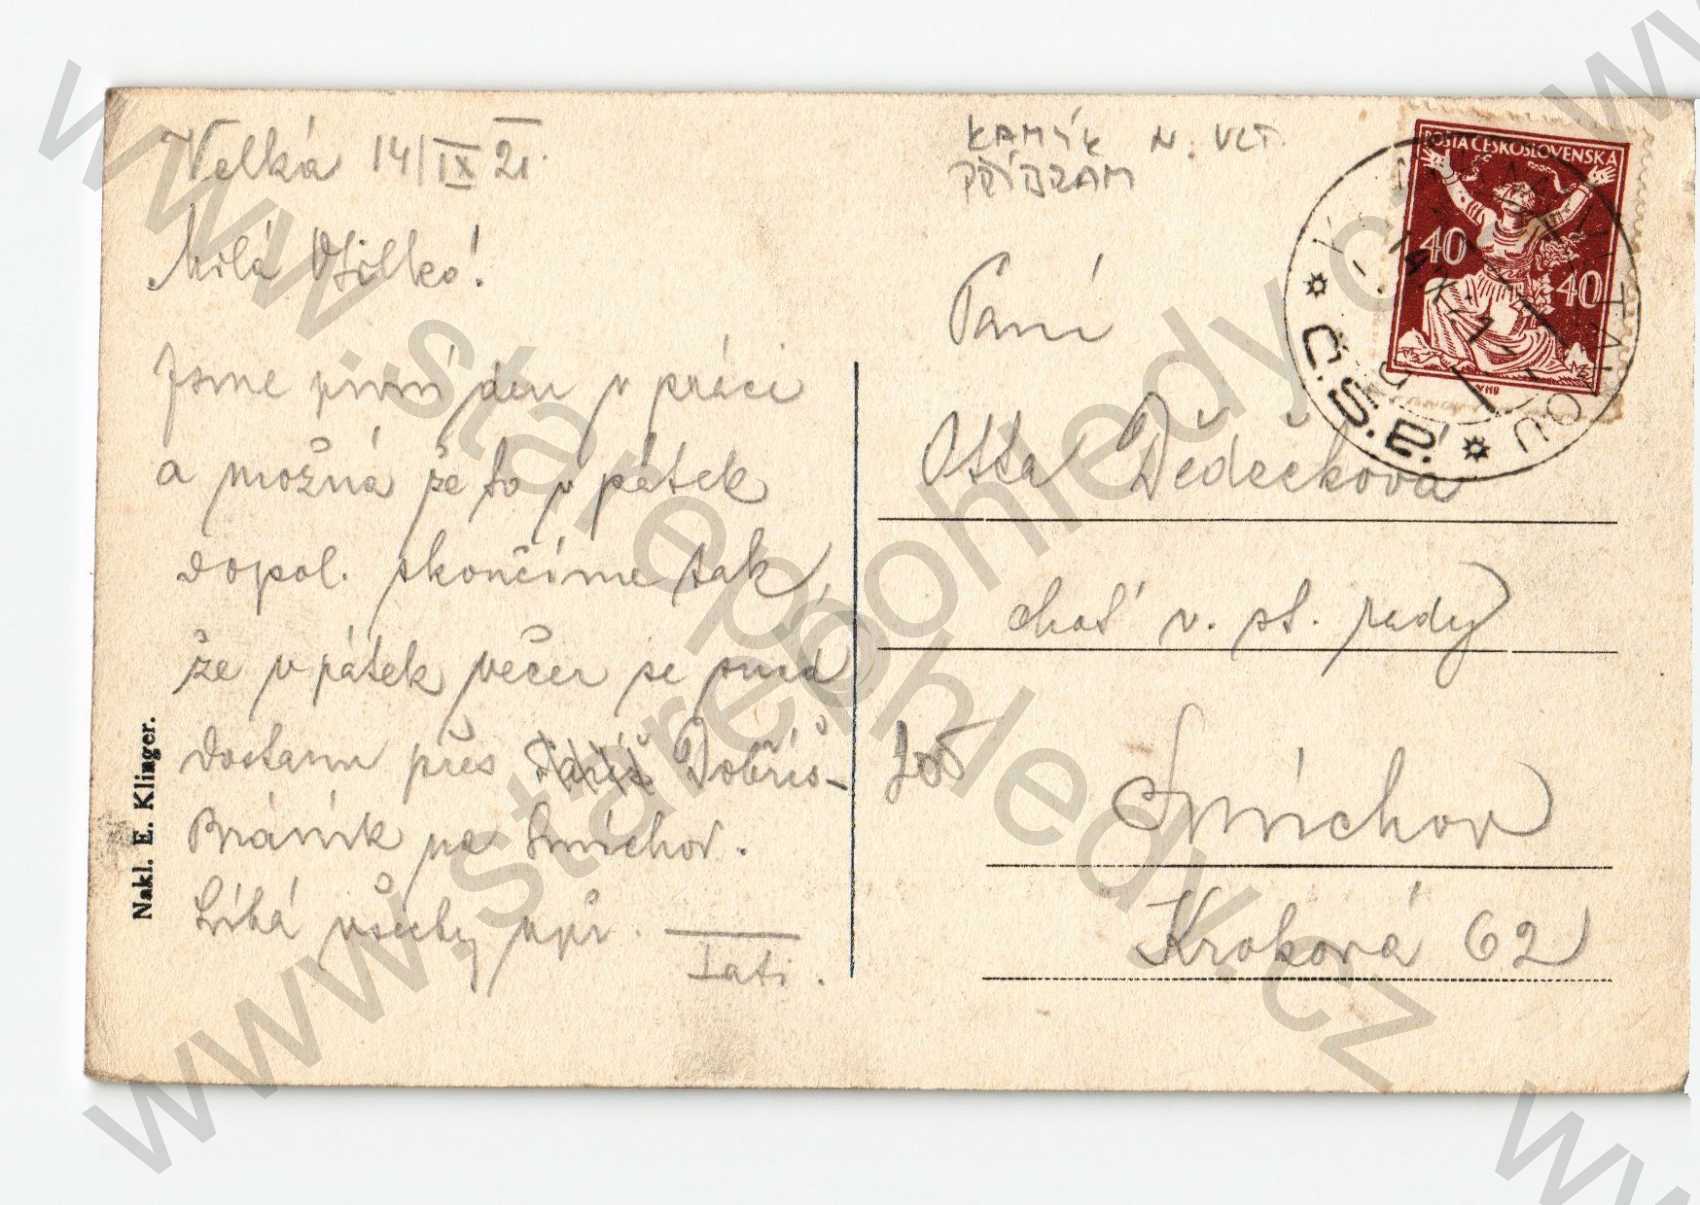 Velká 14/IX 21.
Milá Otilko!
Jsme první den v práci
a možná že to v pátek
dopol. skončíme tak,
že v pátek večer se snad
dostanu přes Dobříš-
Bráník na Smíchov.
Líbá všechny
Tati.
Nakl. E. Klinger.
KAMÝK N. VLT.
PŘÍBRAM
POŠTA ČESKOSLOVENSKA
40
40
Č.S.P.
Paní
Otta Dědečková
choť v. st. rady
Smíchov
Kroková 62
www.starepohledy.cz
www.starepohledy.cz